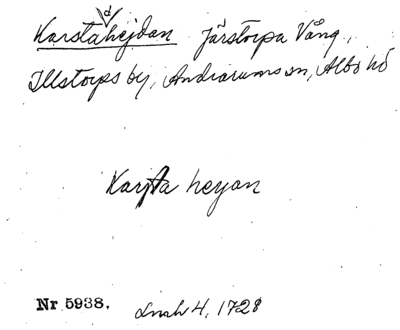 Karstadhejdan Järstorpa Vång,
Illstorps by, Andrarums sn, Albo hd
Karsta heyan
Nr 5938. Lnsh 4, 1728